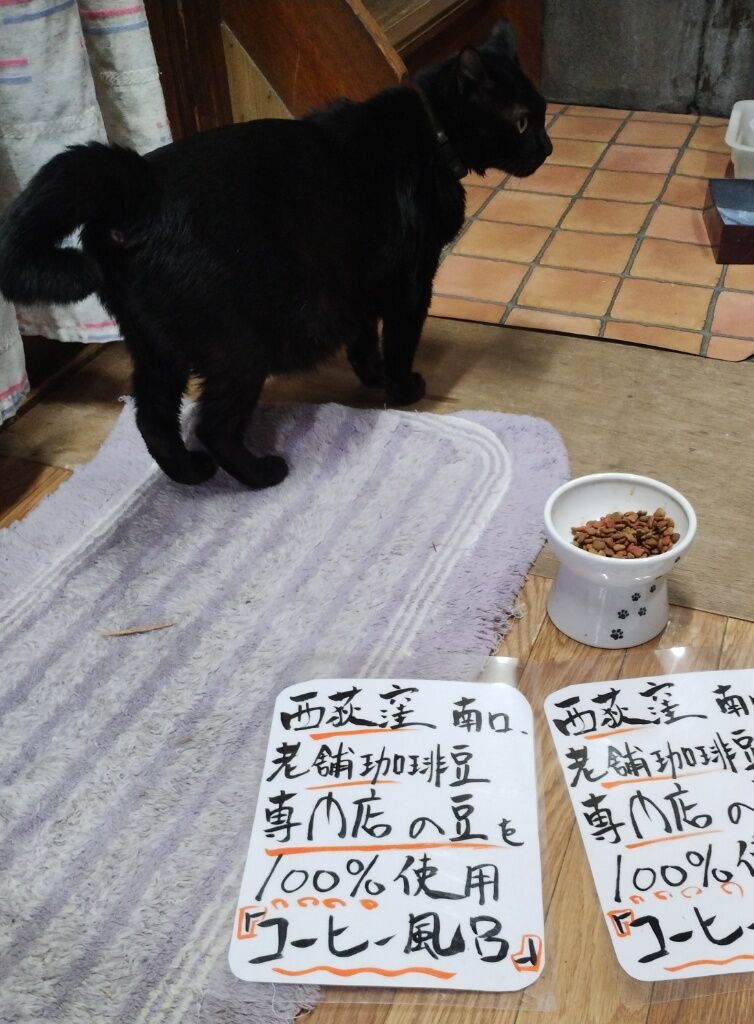 西荻窪 南口、
老舗珈琲豆
専門店の豆を
100%使用
『コーヒー風呂』
西荻窪 南口
老舗珈琲豆
専門店の
100%使
『コーヒー